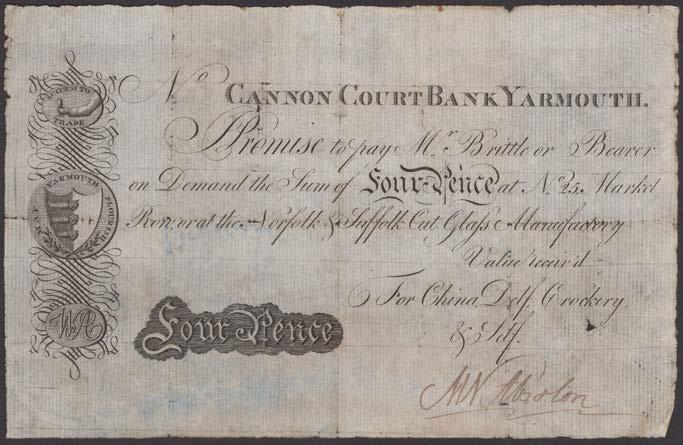 SUCCESS TO
TRADE
YARMOUTH
WA
No CANNON COURT BANK YARMOUTH.
I Promise to pay Mr. Brittle or Bearer
on Demand the Sum of Four-Pence at No. 25, Market
Row, or at the Norfolk & Suffolk Cut Glass Manufactory
Value receiv'd
For China, Delf, Crockery,
& Self.
Four Pence
Absolon